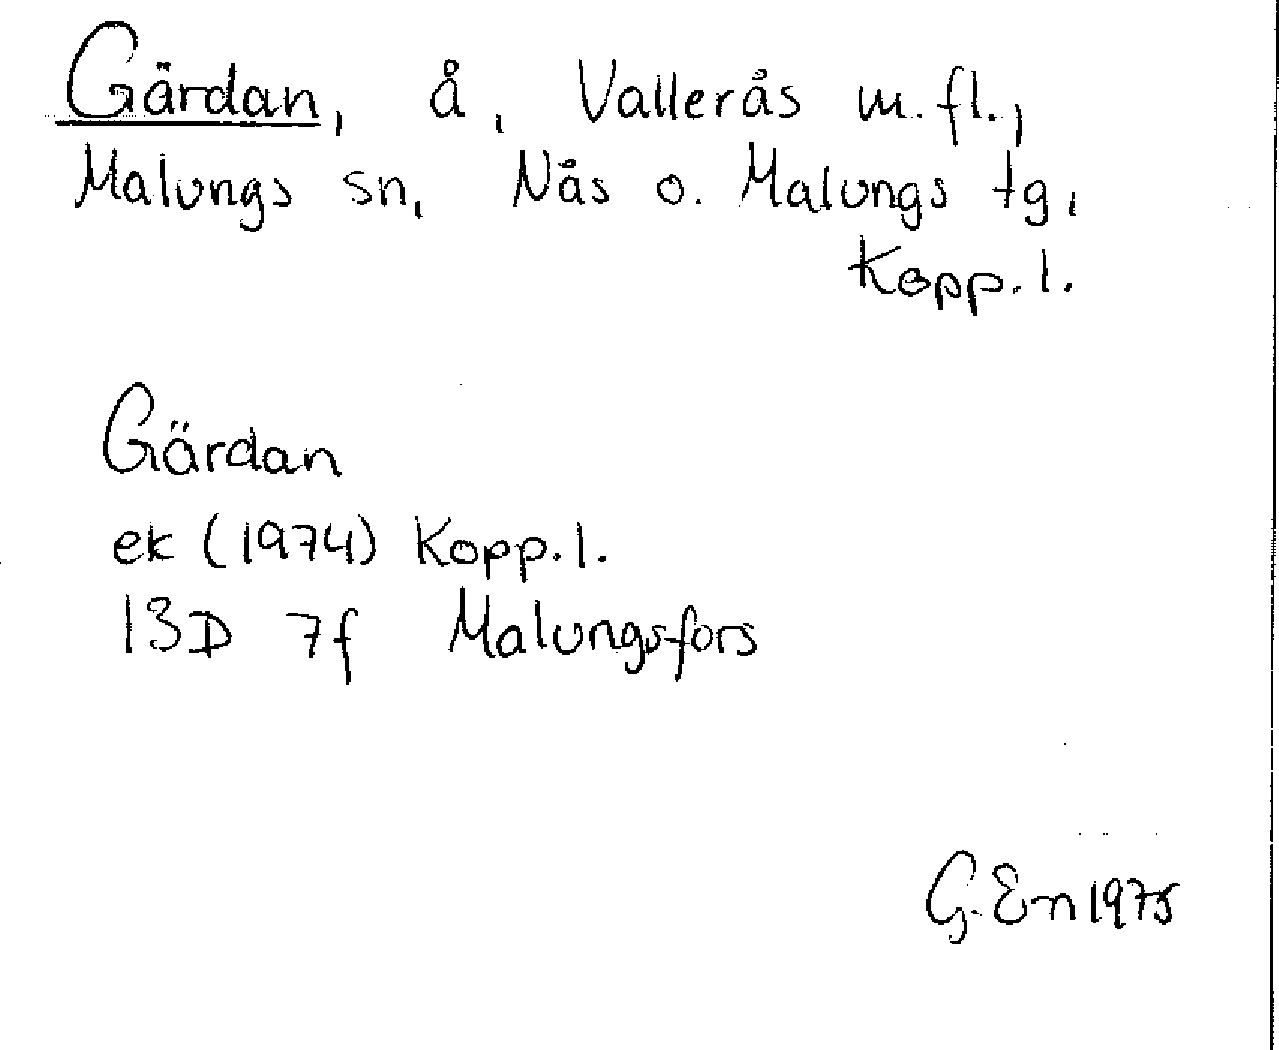 Gärdan, å, Vallerås m.fl.,
Malungs sn, Nås o. Malungs tg,
Kopp.l.
Gärdan
ek (1974) Kopp.l.
13D 7f Malungsfors
G. En 1975